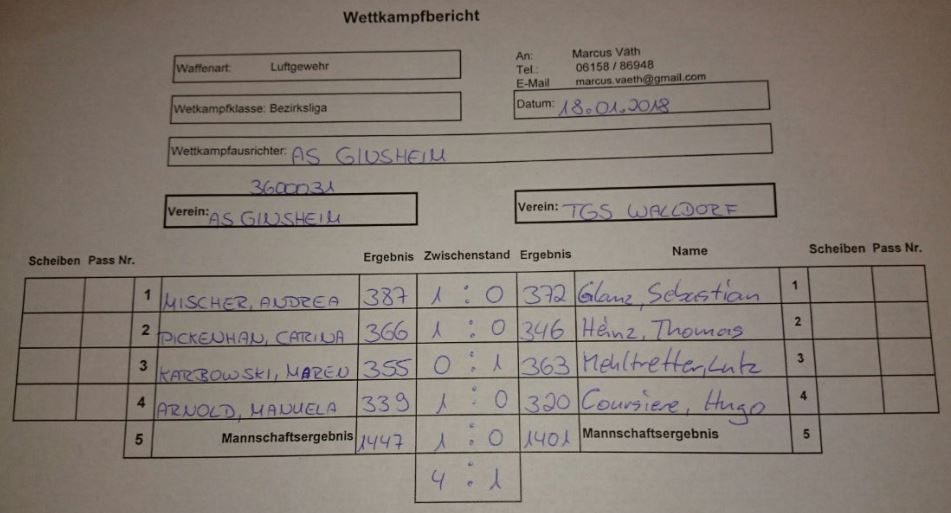 Wettkampfbericht
Waffenart: Luftgewehr
An: Marcus Väth
Tel.: 06158 / 86948
E-Mail marcus.vaeth@gmail.com
Wetkampfklasse: Bezirksliga
Datum: 18.01.2018
Wettkampfausrichter: AS GINSHEIM
3600031
Verein: AS GINSHEIM
Verein: TGS WALLDORF
Scheiben Pass Nr. Ergebnis Zwischenstand Ergebnis Name Scheiben Pass Nr.
1 MISCHER, ANDREA 387 1 : 0 372 Glanz, Sebastian 1
2 PICKENHAN, CARINA 366 1 : 0 346 Heinz, Thomas 2
3 KARBOWSKI, MAREN 355 0 : 1 363 Mehltretter, Lutz 3
4 ARNOLD, MANUELA 339 1 : 0 320 Coursiere, Hugo 4
5 Mannschaftsergebnis 1447 1 : 0 1401 Mannschaftsergebnis 5
4 : 1